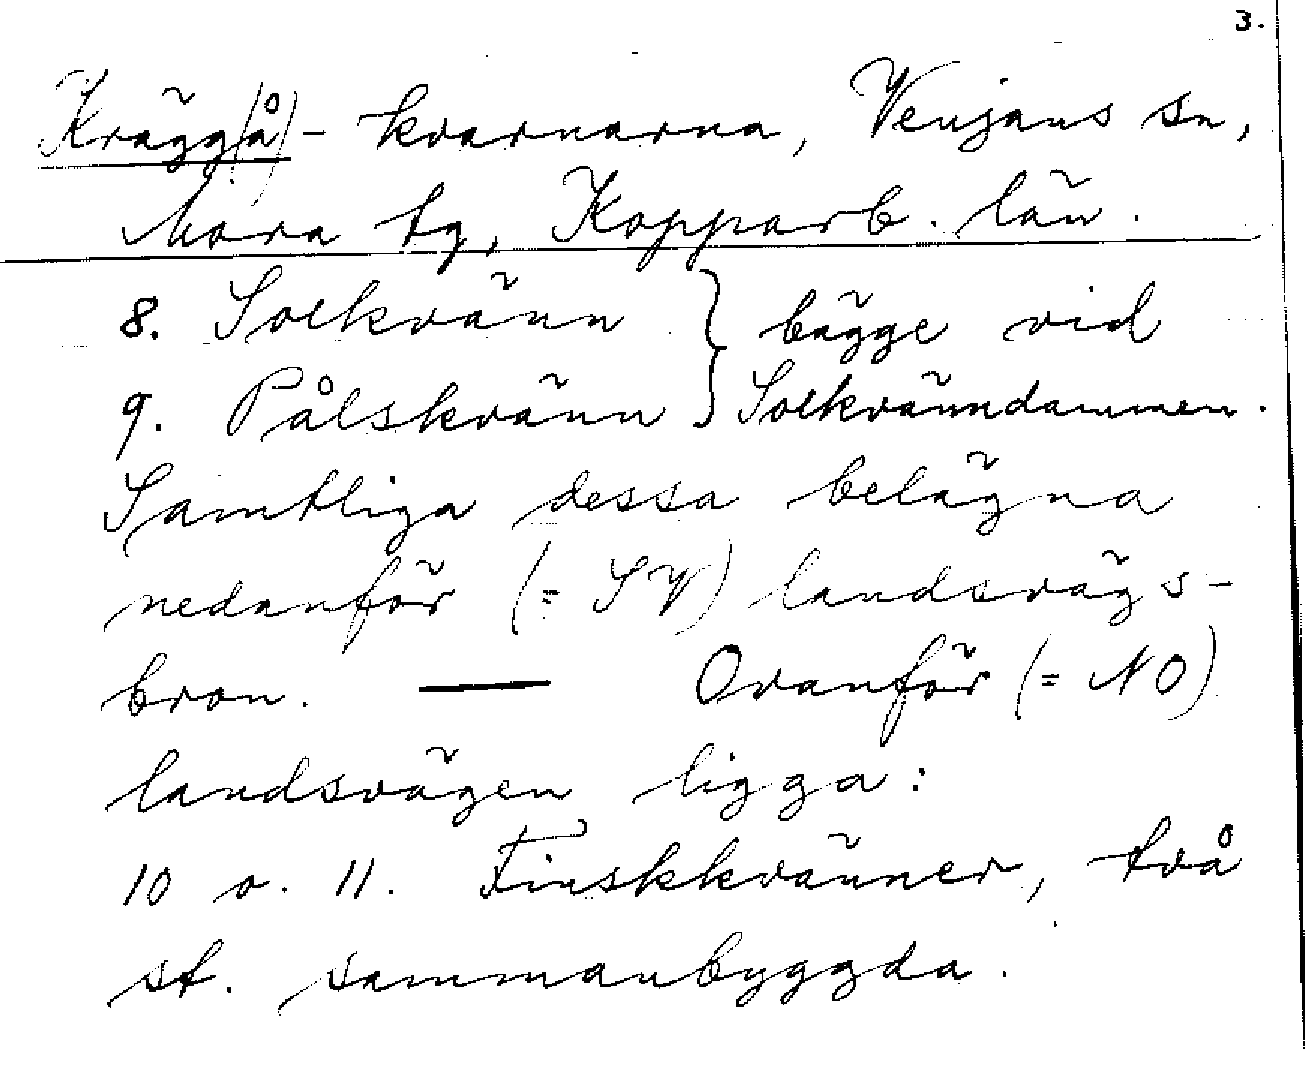 3.
Krägg(å)-kvarnarna, Venjans sn,
Mora tg, Kopparb. län.
8. Solkvänn } bägge vid
9. Pålskvänn } Solkvänndammen.
Samtliga dessa belägna
nedanför (= SV) landsvägs-
bron. — Ovanför (= NO)
landsvägen ligga:
10 o. 11. Finskkvänner, två
st. sammanbyggda.